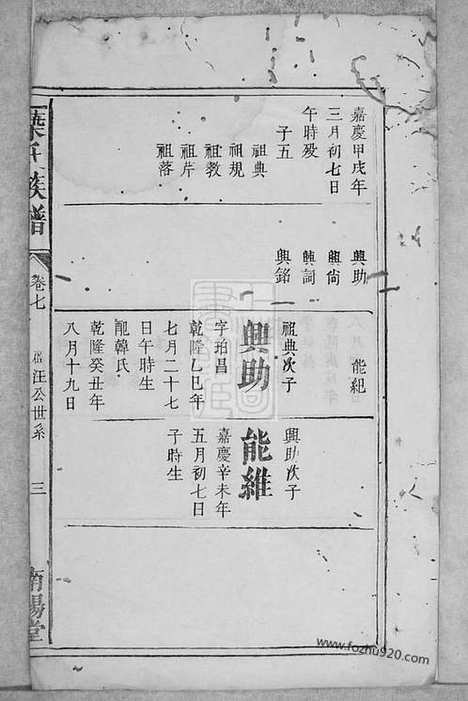 嘉慶甲戌年
三月初七日
午時殁
子五
祖典
祖規
祖教
祖芹
祖落
興助
興尙
興詞
興銘
能紀
祖典次子
興助
字珀昌
乾隆乙巳年
七月二十七
日午時生
配韓氏
乾隆癸丑年
八月十九日
興助次子
能維
嘉慶辛未年
五月初七日
子時生
葉氏族譜
卷七
汪公世系
三
南陽堂
www.fozhu920.com